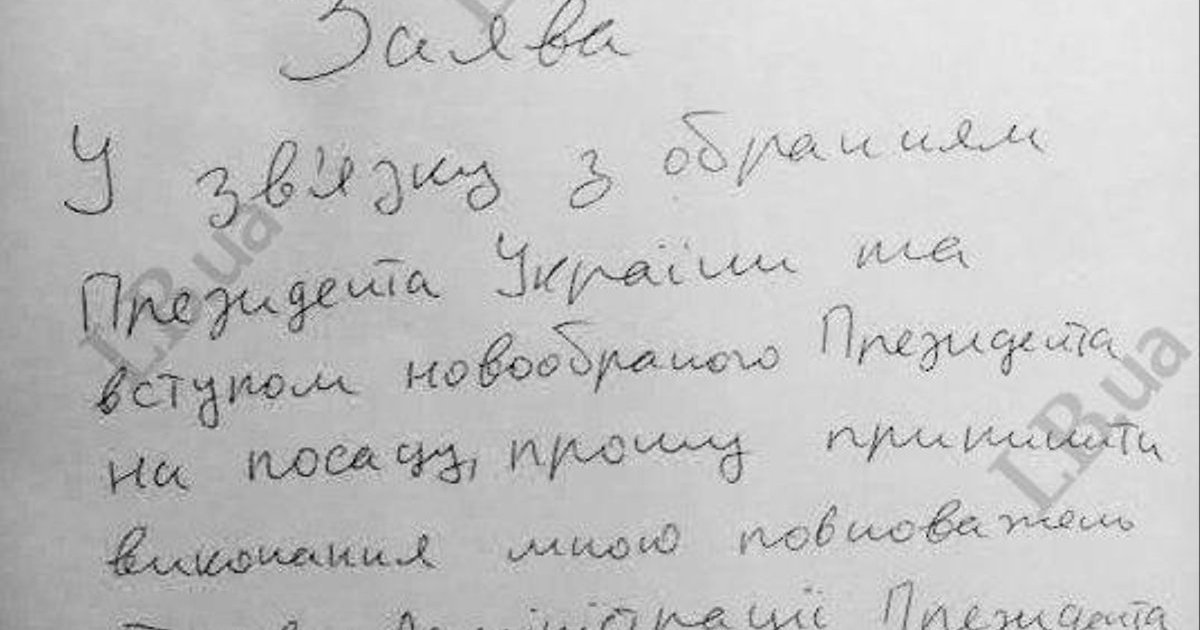 Заява
У зв'язку з обранням
Президента України та
вступом новообраного Президента
на посаду, прошу припинити
виконання мною повноважень
Адміністрації Президента
LB.ua
LB.ua